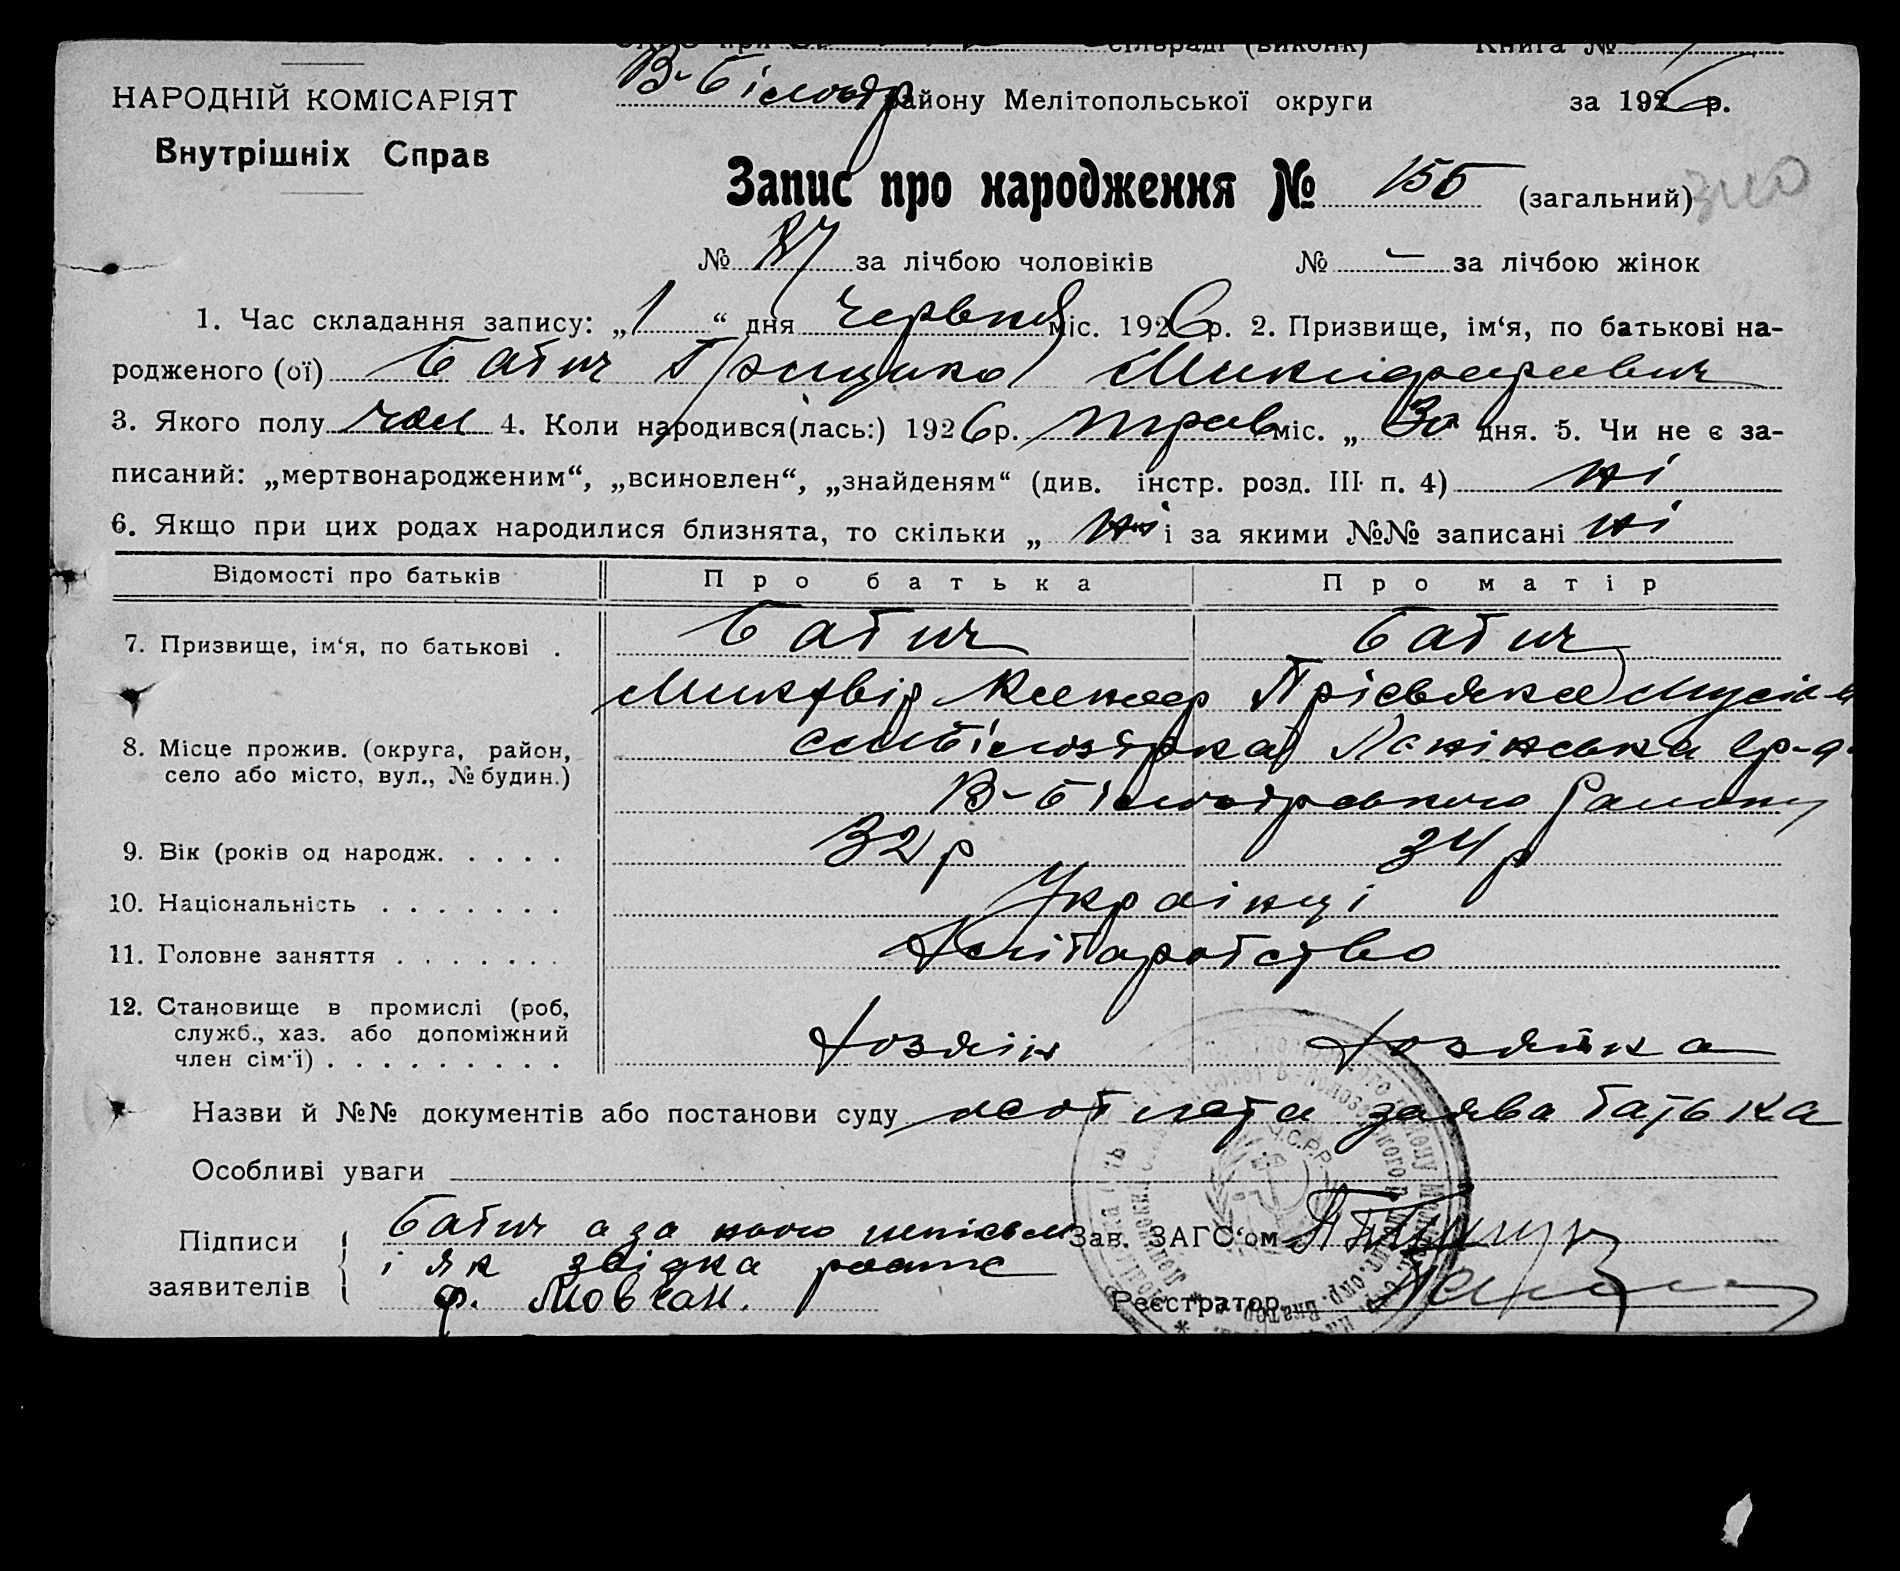 сільраді (виконк) Книга №
НАРОДНІЙ КОМІСАРІЯТ
Внутрішніх Справ
В-Білозер району Мелітопольської округи за 1926 р.
Запис про народження № 155 (загальний)
№ 87 за лічбою чоловіків № - за лічбою жінок
1. Час складання запису: „1“ дня червня міс. 1926 р. 2. Призвище, ім‘я, по батькові на-
родженого (ої) Батич Грицько
3. Якого полу чол 4. Коли народився(лась:) 1926 р. трав міс. „ 30 дня. 5. Чи не є за-
писаний: „мертвонародженим“, „всиновлен“, „знайденям“ (див. інстр. розд. III п. 4) ні
6. Якщо при цих родах народилися близнята, то скільки „ ні і за якими №№ записані ні
Відомості про батьків Про батька Про матір
7. Призвище, ім‘я, по батькові . Батич Батич
8. Місце прожив. (округа, район,
село або місто, вул., № будин.)
В-Білозерського Району
9. Вік (років од народж. . . . . 32 р 34 р
10. Національність . . . . . . . Українці
11. Головне заняття . . . . . . . Хліборобство
12. Становище в промислі (роб,
служб., хаз. або допоміжний
член сім‘ї) . . . . . . . . . Хозяін Хозяйка
Назви й №№ документів або постанови суду заява батька
Особливі уваги
Підписи
заявителів
Батич а за нього
і як звідка
Ф. Мовчан.
Зав. ЗАГС‘ом
Реєстратор
У.С.Р.Р.